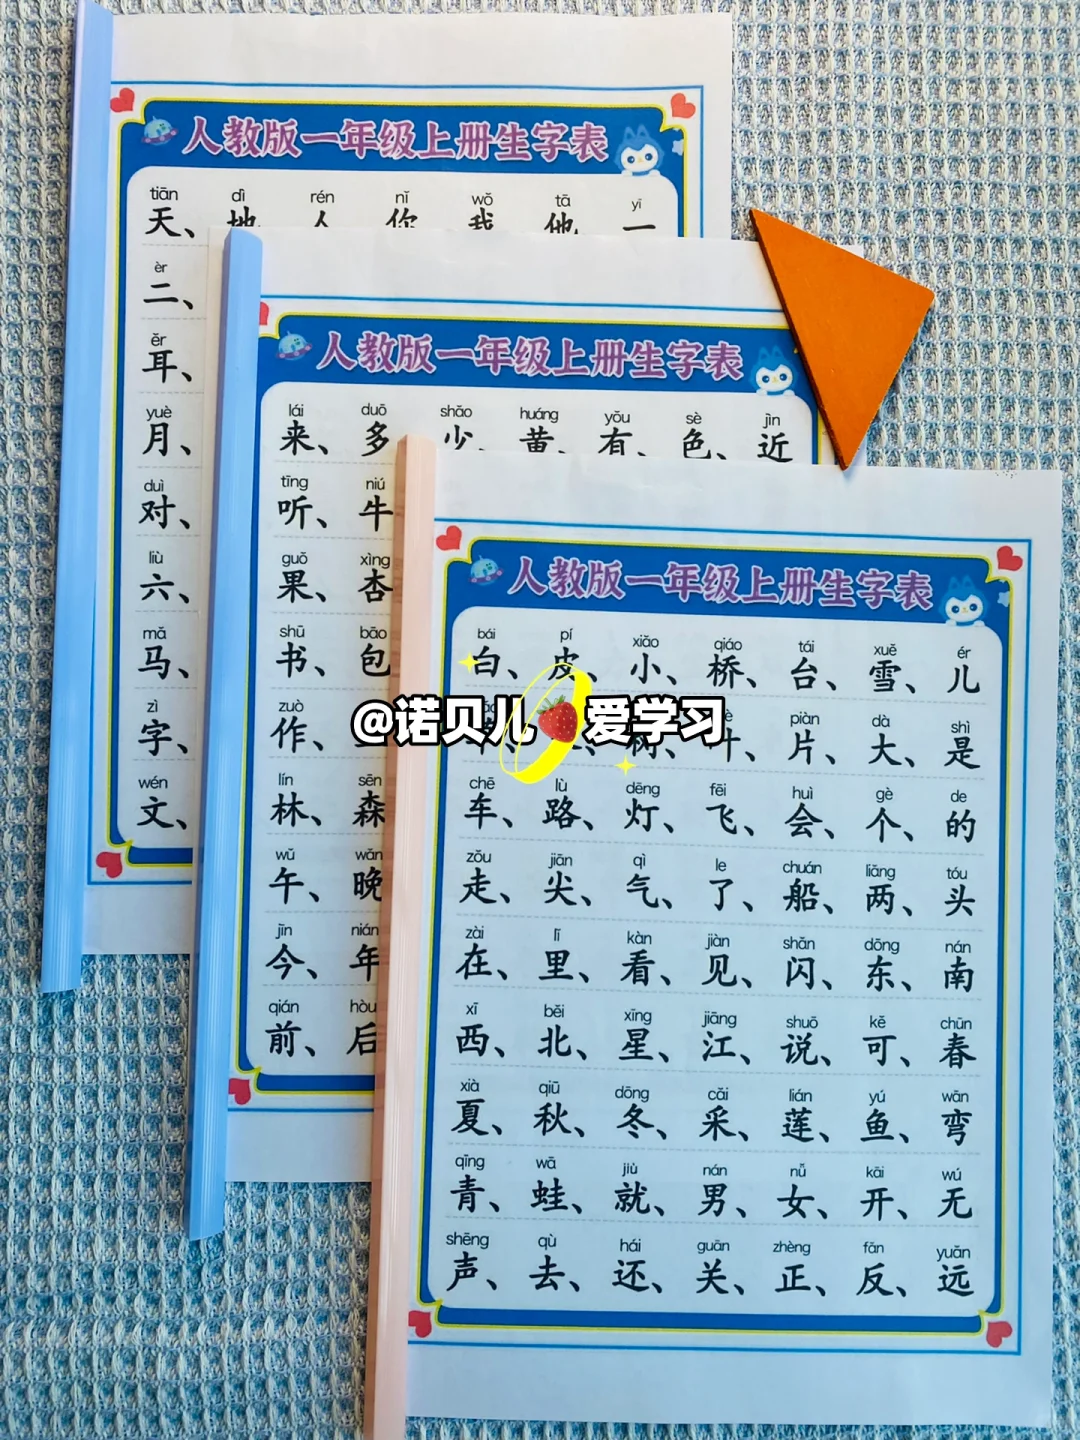 人教版一年级上册生字表
tiān dì rén nǐ wǒ tā yī
天、地、人、你、我、他、一
èr
二、
ěr
耳、
yuè
月、
duì
对、
liù
六、
mǎ
马、
zì
字、
wén
文、
人教版一年级上册生字表
lái duō shǎo huáng yǒu sè jìn
来、多、少、黄、有、色、近
tīng niú
听、牛
guǒ xìng
果、杏
shū bāo
书、包
zuò
作、
lín sēn
林、森
wǔ wǎn
午、晚
jīn nián
今、年
qián hòu
前、后
人教版一年级上册生字表
bái pí xiǎo qiáo tái xuě ér
白、皮、小、桥、台、雪、儿
@诺贝儿🍓爱学习
piàn dà shì
树、叶、片、大、是
chē lù dēng fēi huì gè de
车、路、灯、飞、会、个、的
zǒu jiān qì le chuán liǎng tóu
走、尖、气、了、船、两、头
zài lǐ kàn jiàn shǎn dōng nán
在、里、看、见、闪、东、南
xī běi xīng jiāng shuō kě chūn
西、北、星、江、说、可、春
xià qiū dōng cǎi lián yú wān
夏、秋、冬、采、莲、鱼、弯
qīng wā jiù nán nǚ kāi wú
青、蛙、就、男、女、开、无
shēng qù hái guān zhèng fǎn yuǎn
声、去、还、关、正、反、远